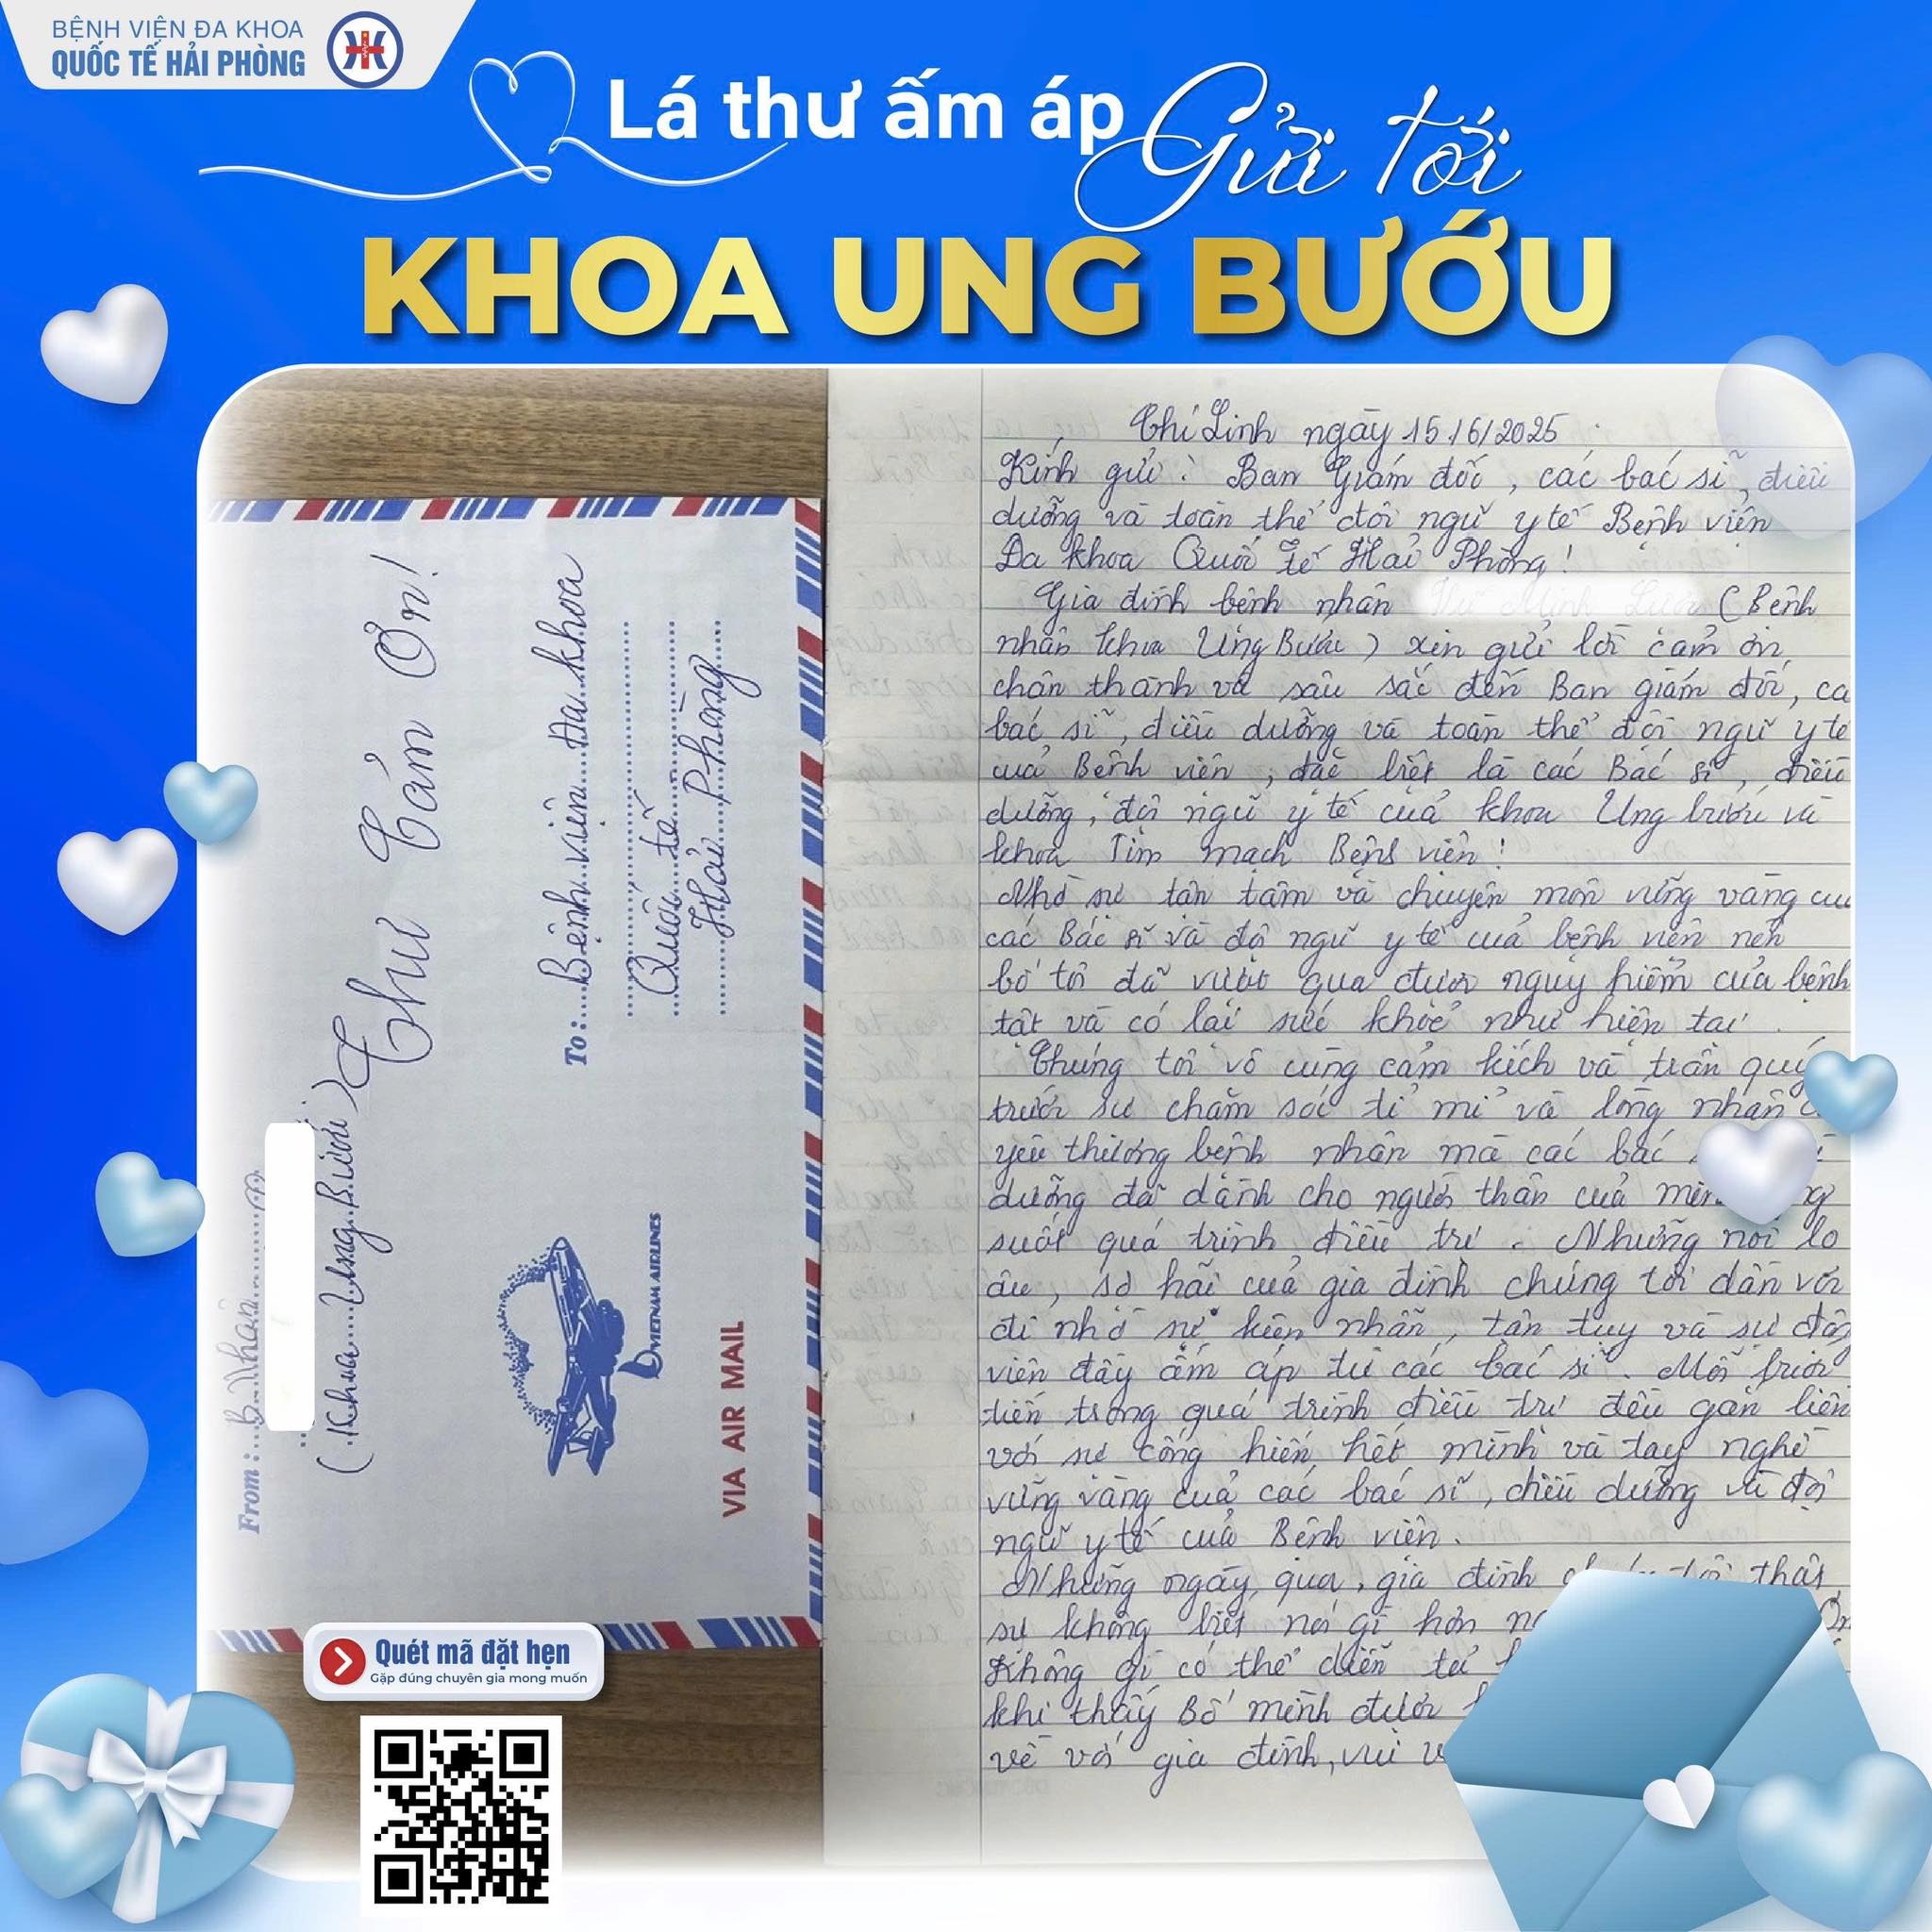 BỆNH VIỆN ĐA KHOA
QUỐC TẾ HẢI PHÒNG
Lá thư ấm áp Gửi tới
KHOA UNG BƯỚU
From: B. Nhân
(Khoa Ung Bướu)
Thư Cảm Ơn!
To: Bệnh viện Đa khoa
Quốc tế
Hải Phòng
VIETNAM AIRLINES
VIA AIR MAIL
Chí Linh ngày 15/6/2025
Kính gửi: Ban Giám đốc, các bác sĩ, điều
dưỡng và toàn thể đội ngũ y tế Bệnh viện
Đa khoa Quốc tế Hải Phòng!
Gia đình bệnh nhân (Bệnh
nhân khoa Ung Bướu) xin gửi lời cảm ơn
chân thành và sâu sắc đến Ban giám đốc, cá
bác sĩ, điều dưỡng và toàn thể đội ngũ y tế
của Bệnh viện, đặc biệt là các Bác sĩ, điều
dưỡng, đội ngũ y tế của khoa Ung bướu và
khoa Tim mạch Bệnh viện!
Nhờ sự tận tâm và chuyên môn vững vàng củ
các Bác sĩ và đội ngũ y tế của bệnh viện nên
bố tôi đã vượt qua được nguy hiểm của bệnh
tật và có lại sức khỏe như hiện tại.
Chúng tôi vô cùng cảm kích và trân quý
trước sự chăm sóc tỉ mỉ và lòng nhân
yêu thương bệnh nhân mà các bác
dưỡng đã dành cho người thân của mình
suốt quá trình điều trị. Những nỗi lo
âu, sợ hãi của gia đình chúng tôi dần vơi
đi nhờ sự kiên nhẫn, tận tụy và sự động
viên đầy ấm áp từ các bác sĩ. Mỗi bước
tiến trong quá trình điều trị đều gắn liền
với sự cống hiến hết mình và tay nghề
vững vàng của các bác sĩ, điều dưỡng và đội
ngũ y tế của Bệnh viện.
Những ngày qua, gia đình thật
sự không biết nói gì hơn
Không gì có thể diễn tả
khi thấy Bố mình được
về với gia đình, vui v
Quét mã đặt hẹn
Gặp đúng chuyên gia mong muốn